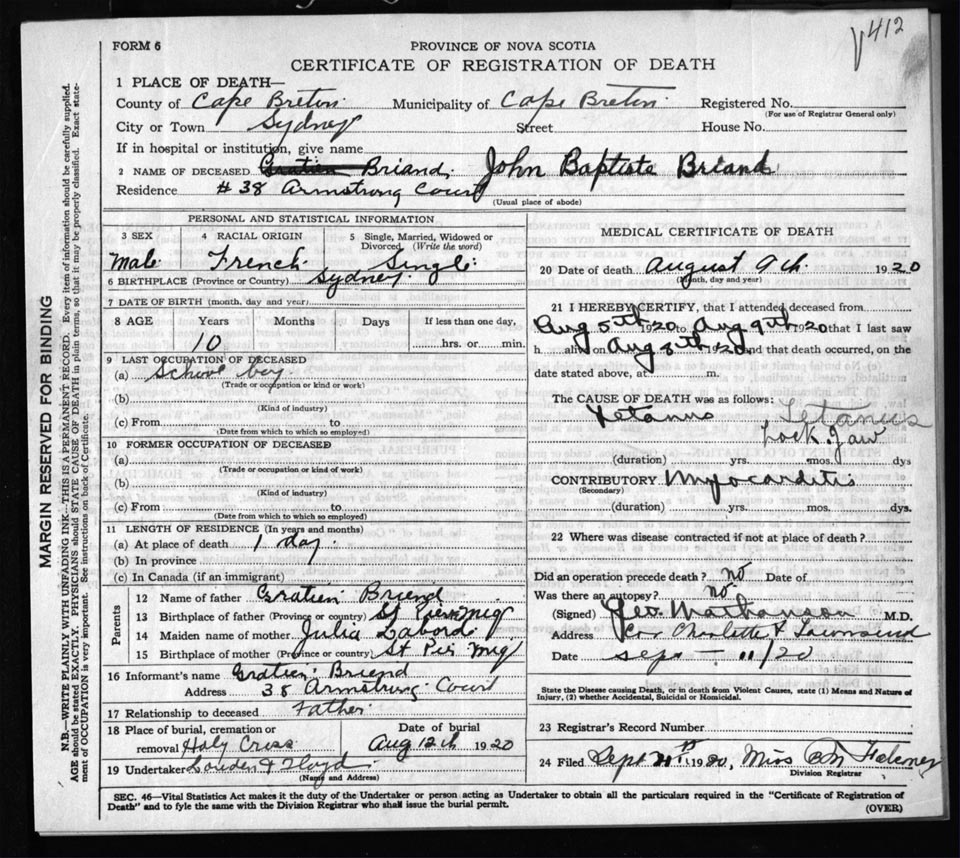 412
FORM 6
PROVINCE OF NOVA SCOTIA
CERTIFICATE OF REGISTRATION OF DEATH
1 PLACE OF DEATH—
County of Cape Breton Municipality of Cape Breton Registered No.
(For use of Registrar General only)
City or Town Sydney Street House No.
If in hospital or institution, give name
2 NAME OF DECEASED Gratien Briand. John Baptiste Briand
Residence # 38 Armstrong Court
(Usual place of abode)
PERSONAL AND STATISTICAL INFORMATION
3 SEX 4 RACIAL ORIGIN 5 Single, Married, Widowed or Divorced (Write the word)
Male French Single
6 BIRTHPLACE (Province or Country) Sydney
7 DATE OF BIRTH (month, day and year)
8 AGE Years Months Days If less than one day,
10 hrs. or min.
9 LAST OCCUPATION OF DECEASED
(a) School boy
(Trade or occupation or kind or work)
(b)
(Kind of industry)
(c) From to
(Date from which to which so employed)
10 FORMER OCCUPATION OF DECEASED
(a)
(Trade or occupation or kind of work)
(b)
(Kind of industry)
(c) From to
(Date from which to which so employed)
11 LENGTH OF RESIDENCE (In years and months)
(a) At place of death 1 day
(b) In province
(c) In Canada (if an immigrant)
Parents
12 Name of father Gratien Briend
13 Birthplace of father (Province or country) St Pier Miq
14 Maiden name of mother Julia Labord
15 Birthplace of mother (Province or country) St Pier Miq
16 Informant's name Gratien Briend
Address 38 Armstrong Court
17 Relationship to deceased Father
18 Place of burial, cremation or Date of burial
removal Holy Cross Aug 12th 1920
19 Undertaker Louden & Floyd
(Name and Address)
MEDICAL CERTIFICATE OF DEATH
20 Date of death August 9th. 1920
(Month, day and year)
21 I HEREBY CERTIFY, that I attended deceased from
Aug 5th 1920 to Aug 9th 1920 that I last saw
h alive on Aug 8th 1920 and that death occurred, on the
date stated above, at m.
The CAUSE OF DEATH was as follows:
Tetanus Tetanus
Lock Jaw
(duration) yrs. mos. dys
CONTRIBUTORY Myocarditis
(Secondary)
(duration) yrs. mos. dys.
22 Where was disease contracted if not at place of death?
Did an operation precede death? no Date of
Was there an autopsy? no
(Signed) Geo. Mathanson M.D.
Address Cor Charlotte & Townsend
Date Sept — 11/20
State the Disease causing Death, or in death from Violent Causes, state (1) Means and Nature of
Injury, (2) whether Accidental, Suicidal or Homicidal.
23 Registrar's Record Number
24 Filed Sept 1920, Miss
Division Registrar
SEC. 46—Vital Statistics Act makes it the duty of the Undertaker or person acting as Undertaker to obtain all the particulars required in the "Certificate of Registration of
Death" and to fyle the same with the Division Registrar who shall issue the burial permit.
(OVER)
MARGIN RESERVED FOR BINDING
N.B.—WRITE PLAINLY WITH UNFADING INK—THIS IS A PERMANENT RECORD. Every item of information should be carefully supplied.
AGE should be stated EXACTLY. PHYSICIANS should STATE CAUSE OF DEATH in plain terms, so that it may be properly classified. Exact state-
ment of OCCUPATION is very important. See instructions on back of Certificate.